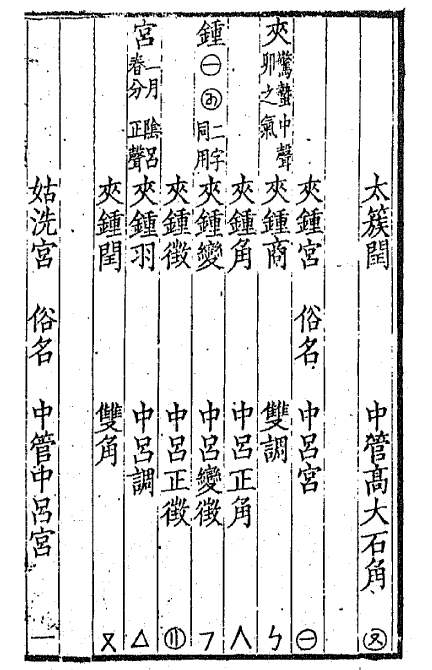 太簇閏 中管高大石角
夾鍾宮 俗名 中呂宮 ㊀
夾 驚蟄中聲 卯之氣 夾鍾商 雙調 ㄣ
夾鍾角 中呂正角 人
鍾 ㊀ 二字同用 夾鍾變 中呂變徵 フ
夾鍾徵 中呂正徵 ⑪
宮 二月陰呂 春分正聲 夾鍾羽 中呂調 △
夾鍾閏 雙角 ㄡ
姑洗宮 俗名 中管中呂宮 一